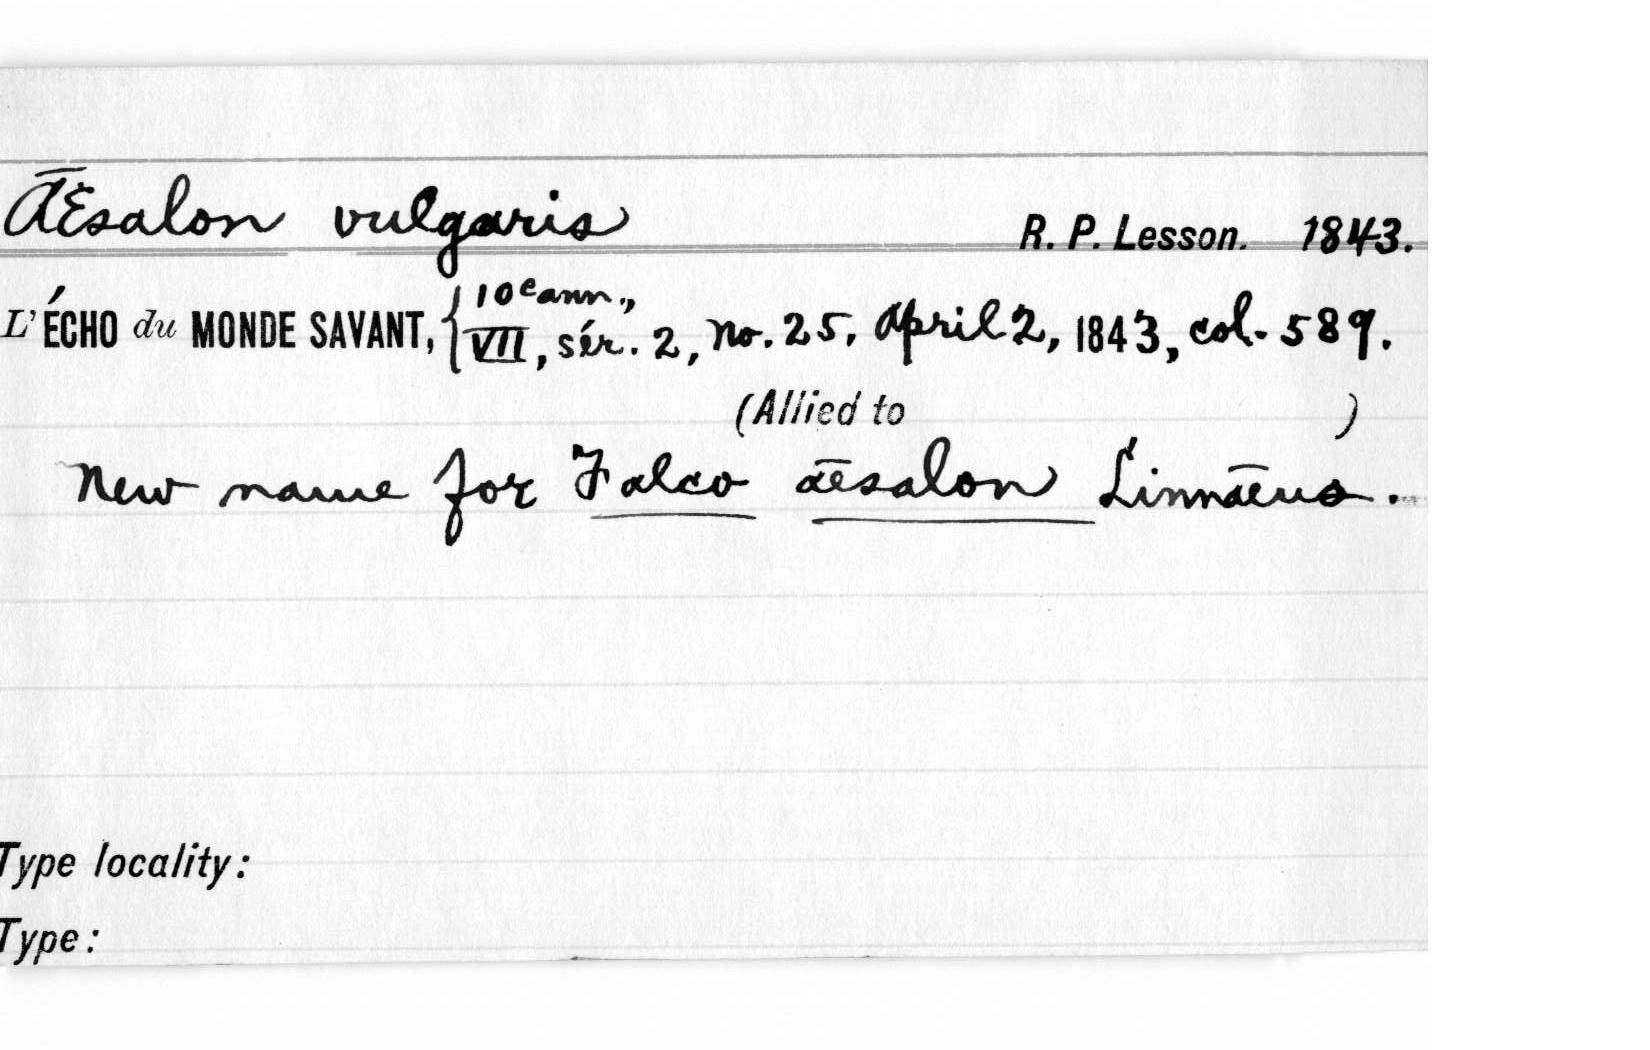 Æsalon vulgaris R. P. Lesson. 1843.
L' ÉCHO du MONDE SAVANT, { 10e ann., VII, sér. 2, no. 25, April 2, 1843, col. 589.
(Allied to )
New name for Falco æsalon Linnæus.
Type locality:
Type: